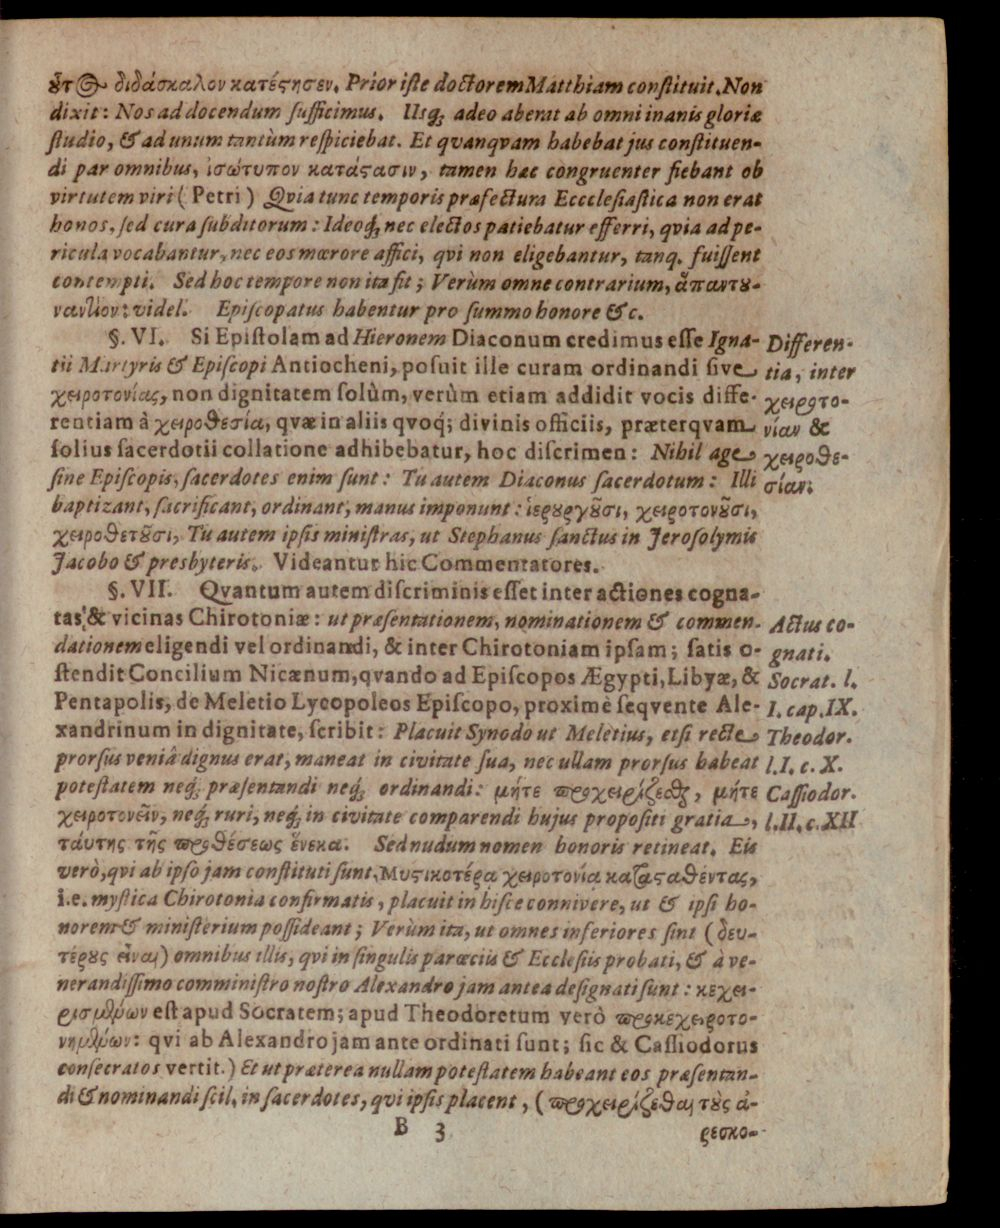 ȣ̃τος διδάσκαλον κατέϛησεν. Prior iste doctorem Matthiam constituit. Non
dixit: Nos ad docendum sufficimus. Usq; adeo aberat ab omni inanis gloriæ
studio, & ad unum tantùm respiciebat. Et qvanqvam habebat jus constituen-
di par omnibus, ἰσώτυπον κατάϛασιν, tamen hæc congruenter fiebant ob
virtutem viri (Petri) Qvia tunc temporis præfectura Eccclesiastica non erat
honos, sed cura subditorum: Ideoq; nec electos patiebatur efferri, qvia ad pe-
ricula vocabantur, nec eos mœrore affici, qvi non eligebantur, tanq. fuissent
contempti. Sed hoc tempore non ita fit; Verùm omne contrarium, ἅπαν τȣ-
ναντίον: videl. Episcopatus habentur pro summo honore &c.
§. VI. Si Epistolam ad Hieronem Diaconum credimus esse Igna-
tii Martyris & Episcopi Antiocheni, posuit ille curam ordinandi sive
χειροτονίας, non dignitatem solùm, verùm etiam addidit vocis diffe-
rentiam à χειροθεσία, qvæ in aliis qvoq; divinis officiis, præterqvam
solius sacerdotii collatione adhibebatur, hoc discrimen: Nihil age
sine Episcopis, sacerdotes enim sunt: Tu autem Diaconus sacerdotum: Illi
baptizant, sacrificant, ordinant, manus imponunt: ἱερȣργȣ̃σι, χειροτονȣ̃σι,
χειροθετȣ̃σι, Tu autem ipsis ministras, ut Stephanus sanctus in Jerosolymis
Jacobo & presbyteris. Videantur hic Commentatores.
Differen-
tia, inter
χειροτο-
νίαν &
χειροθε-
σίαν.
§. VII. Qvantum autem discriminis esset inter actiones cogna-
tas & vicinas Chirotoniæ: ut præsentationem, nominationem & commen-
dationem eligendi vel ordinandi, & inter Chirotoniam ipsam; satis o-
stendit Concilium Nicænum, qvando ad Episcopos Ægypti, Libyæ, &
Pentapolis, de Meletio Lycopoleos Episcopo, proximè seqvente Ale-
xandrinum in dignitate, scribit: Placuit Synodo ut Meletius, etsi recte
prorsus veniâ dignus erat, maneat in civitate sua, nec ullam prorsus habeat
potestatem neq; præsentandi neq; ordinandi: μήτε προχειρίζεσθαι, μήτε
χειροτονεῖν, neq; ruri, neq; in civitate comparendi hujus propositi gratia,
τάυτης τῆς προθέσεως ἕνεκα. Sed nudum nomen honoris retineat. Eis
verò, qvi ab ipso jam constituti sunt, Μυϛικοτέρᾳ χειροτονίᾳ καταϛαθέντας,
i.e. mystica Chirotonia confirmatis, placuit in hisce connivere, ut & ipsi ho-
norem & ministerium possideant; Verùm ita, ut omnes inferiores sint (δευ-
τέρȣς εἶναι) omnibus illis, qvi in singulis parœciis & Ecclesiis probati, & à ve-
nerandissimo comministro nostro Alexandro jam antea designati sunt: κεχει-
ρισμένων est apud Socratem; apud Theodoretum verò προκεχειροτο-
νημένων: qvi ab Alexandro jam ante ordinati sunt; sic & Cassiodorus
consecratos vertit.) Et ut præterea nullam potestatem habeant eos præsentan-
di & nominandi scil. in sacerdotes, qvi ipsis placent, (προχειρίζεθαι τȣ̀ς ἀ-
Actus co-
gnati.
Socrat. l.
I. cap. IX.
Theodor.
l. I. c. X.
Cassiodor.
l. II. c. XII
B 3
ρεσκο-